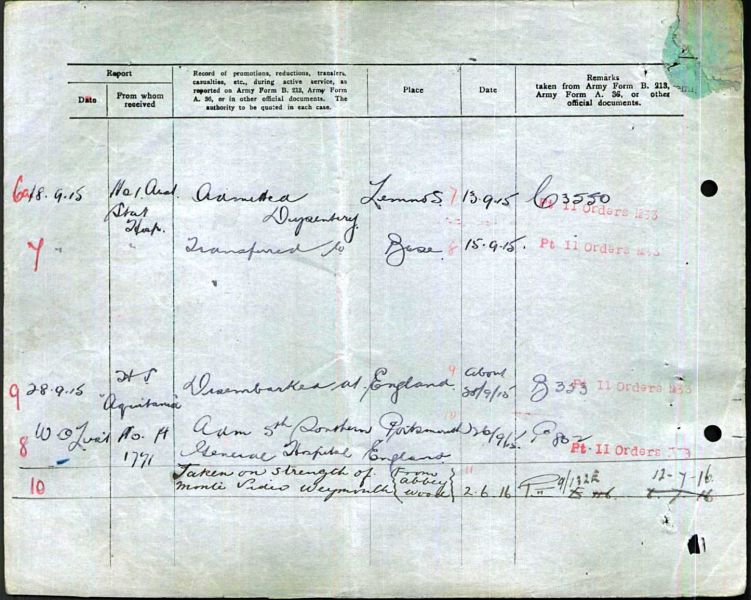 Report
Record of promotions, reductions, transfers,
casualties, etc., during active service, as
reported on Army Form B. 213, Army Form
A. 36, or in other official documents. The
authority to be quoted in each case.
Place
Date
Remarks
taken from Army Form B. 213,
Army Form A. 36, or other
official documents.
Date
From whom
received
6a 18.9.15 No 1 Aust Stat Hosp. Admitted Dysentery Lemnos 7 13.9.15 3550
Pt II Orders
7 " " Transferred to Base 8 15.9.15.
Pt II Orders
9 28.9.15 H S "Aquitania" Disembarked at England 9 about 28/9/15 B 353
Pt II Orders
8 W O List No. H 1771 Adm 5th Southern General Hospital Portsmouth England 10 26/9/15 802
Pt II Orders
10 Taken on strength of Monte Video Weymouth From Abbey Wood 11 2.6.16 12-7-16